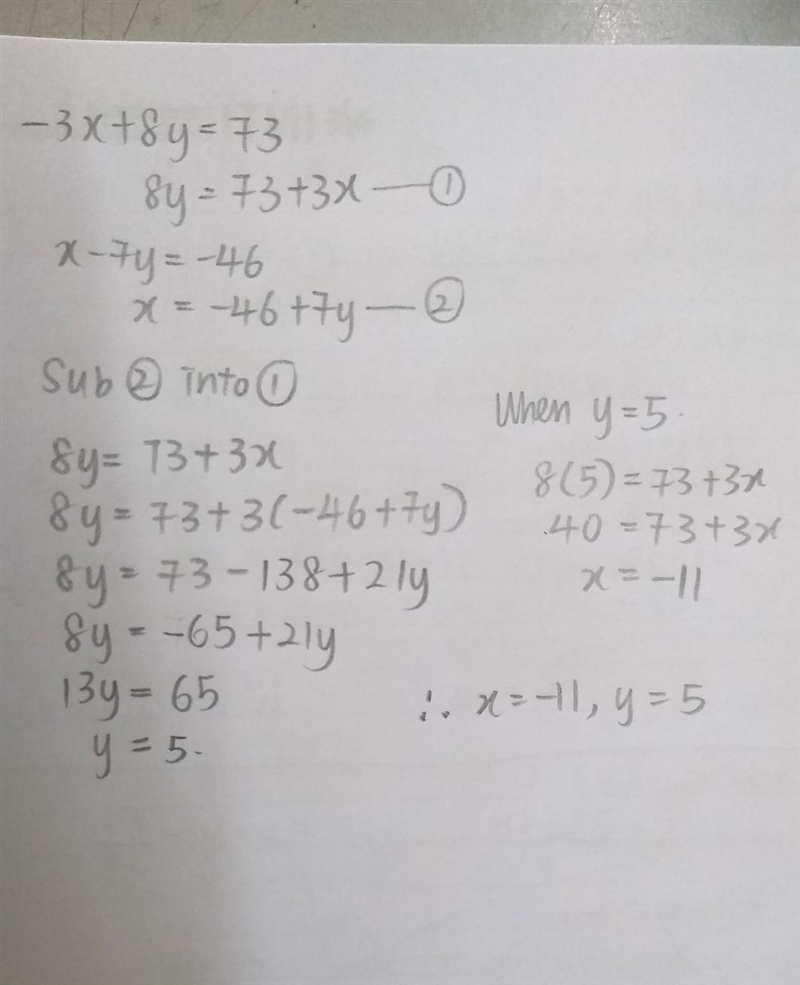 -3x+8y=73
8y=73+3x —①
x-7y=-46
x=-46+7y —②
Sub ② into ①
8y=73+3x
8y=73+3(-46+7y)
8y=73-138+21y
8y=-65+21y
13y=65
y=5.
When y=5.
8(5)=73+3x
40=73+3x
x=-11
∴ x=-11, y=5